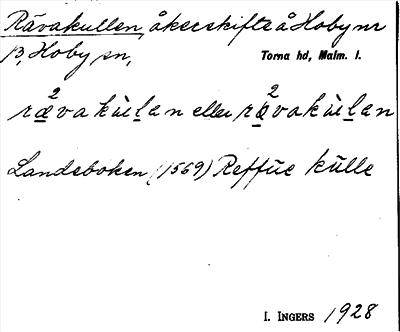 Rävakullen, åkerskifte å Hoby nr
13, Hoby sn, Torna hd, Malm. l.
ræ²vakùlan eller ræ²vakùlan
Landeboken (1569) Reffue kulle
I. INGERS 1928